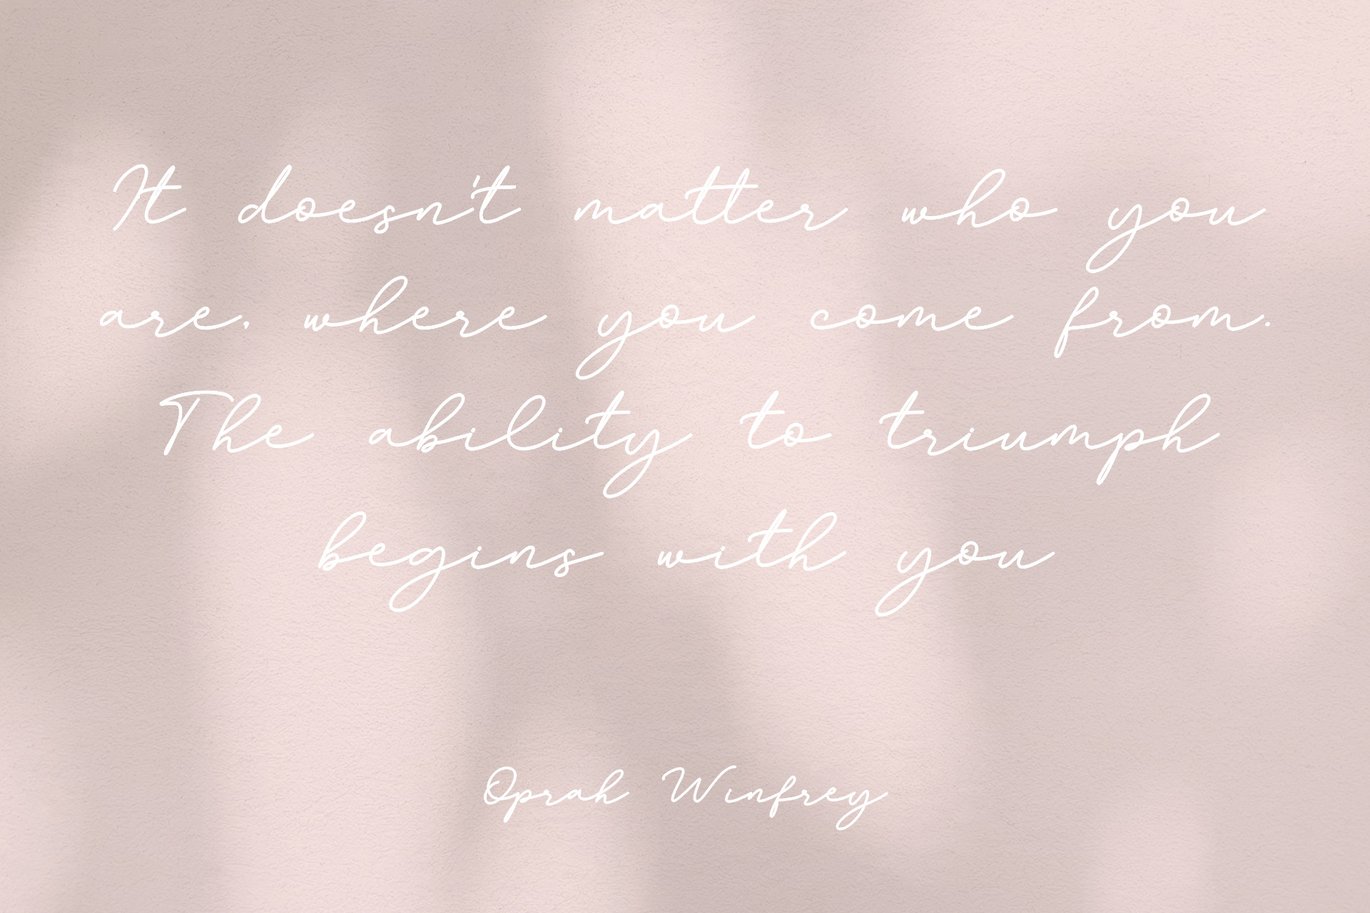 It doesn't matter who you
are, where you come from.
The ability to triumph
begins with you
Oprah Winfrey